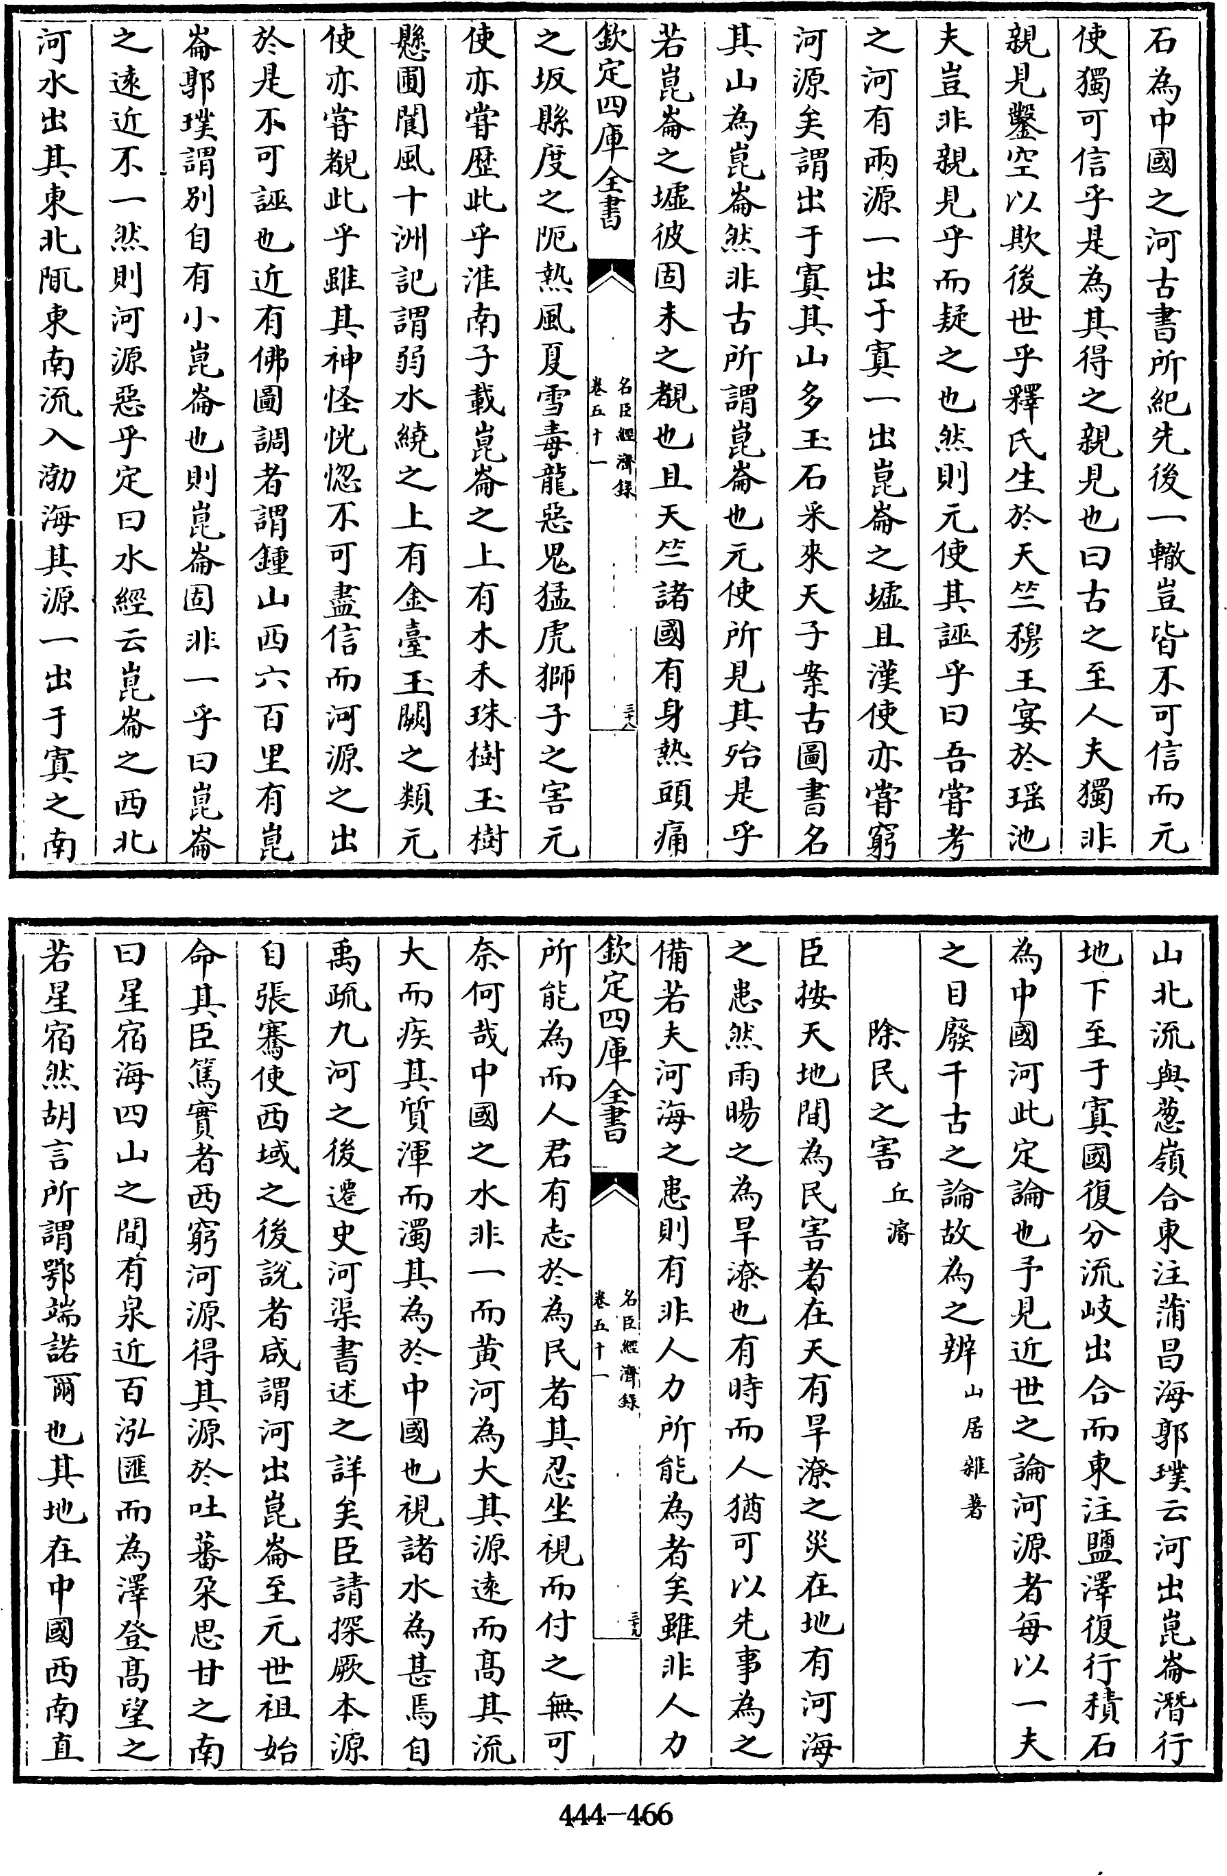 石為中國之河古書所紀先後一轍豈皆不可信而元
使獨可信乎是為其得之親見也曰古之至人夫獨非
親見鑿空以欺後世乎釋氏生於天竺穆王宴於瑶池
夫豈非親見乎而疑之也然則元使其誣乎曰吾甞考
之河有兩源一出于寘一出崑崙之墟且漢使亦甞窮
河源矣謂出于寘其山多玉石采來天子案古圖書名
其山為崑崙然非古所謂崑崙也元使所見其殆是乎
若崑崙之墟彼固未之覩也且天竺諸國有身熱頭痛
欽定四庫全書
名臣經濟録
卷五十一
三十八
之坂縣度之阨熱風夏雪毒龍惡鬼猛虎獅子之害元
使亦甞歷此乎淮南子載崑崙之上有木禾珠樹玉樹
懸圃閬風十洲記謂弱水繞之上有金臺玉闕之類元
使亦甞覩此乎雖其神怪恍惚不可盡信而河源之出
於是不可誣也近有佛圖調者謂鍾山西六百里有崑
崙郭璞謂别自有小崑崙也則崑崙固非一乎曰崑崙
之逺近不一然則河源惡乎定曰水經云崑崙之西北
河水出其東北陬東南流入渤海其源一出于寘之南
山北流與葱嶺合東注蒲昌海郭璞云河出崑崙潛行
地下至于寘國復分流岐出合而東注鹽澤復行積石
為中國河此定論也予見近世之論河源者每以一夫
之目廢千古之論故為之辨 山居雜著
除民之害 丘濬
臣按天地間為民害者在天有旱潦之災在地有河海
之患然雨暘之為旱潦也有時而人猶可以先事為之
備若夫河海之患則有非人力所能為者矣雖非人力
欽定四庫全書
名臣經濟録
卷五十一
三十九
所能為而人君有志於為民者其忍坐視而付之無可
奈何哉中國之水非一而黄河為大其源逺而髙其流
大而疾其質渾而濁其為於中國也視諸水為甚焉自
禹疏九河之後遷史河渠書述之詳矣臣請探厥本源
自張騫使西域之後説者咸謂河出崑崙至元世祖始
命其臣篤實者西窮河源得其源於吐蕃朶思甘之南
曰星宿海四山之間有泉近百泓匯而為澤登髙望之
若星宿然胡言所謂鄂端諾爾也其地在中國西南直
444-466